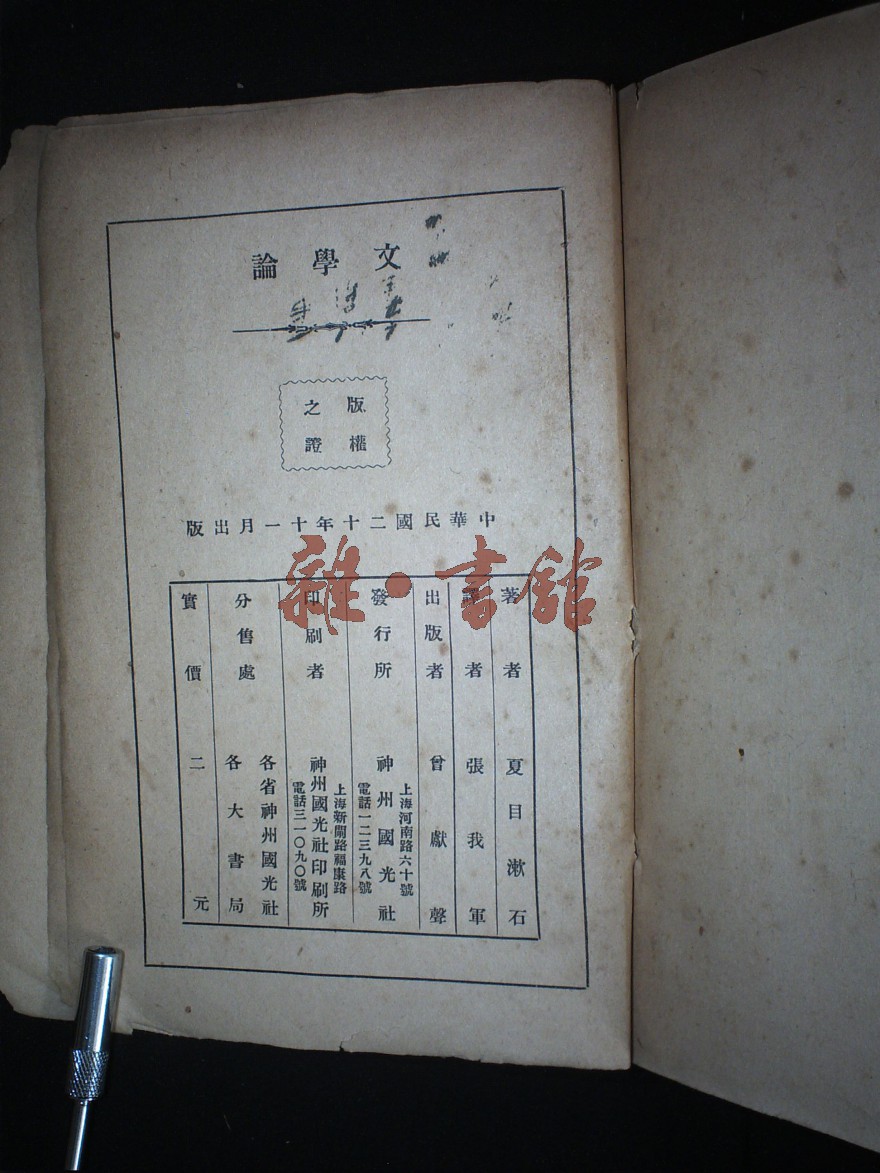 文學論
版權
之證
中華民國二十年十一月出版
著者 夏目漱石
譯者 張我軍
出版者 曾獻聲
發行所 上海河南路六十號
神州國光社
電話一二三九八號
印刷者 上海新閘路福康路
神州國光社印刷所
電話三一〇九〇號
分售處 各省神州國光社
各大書局
實價二元
雜·書館